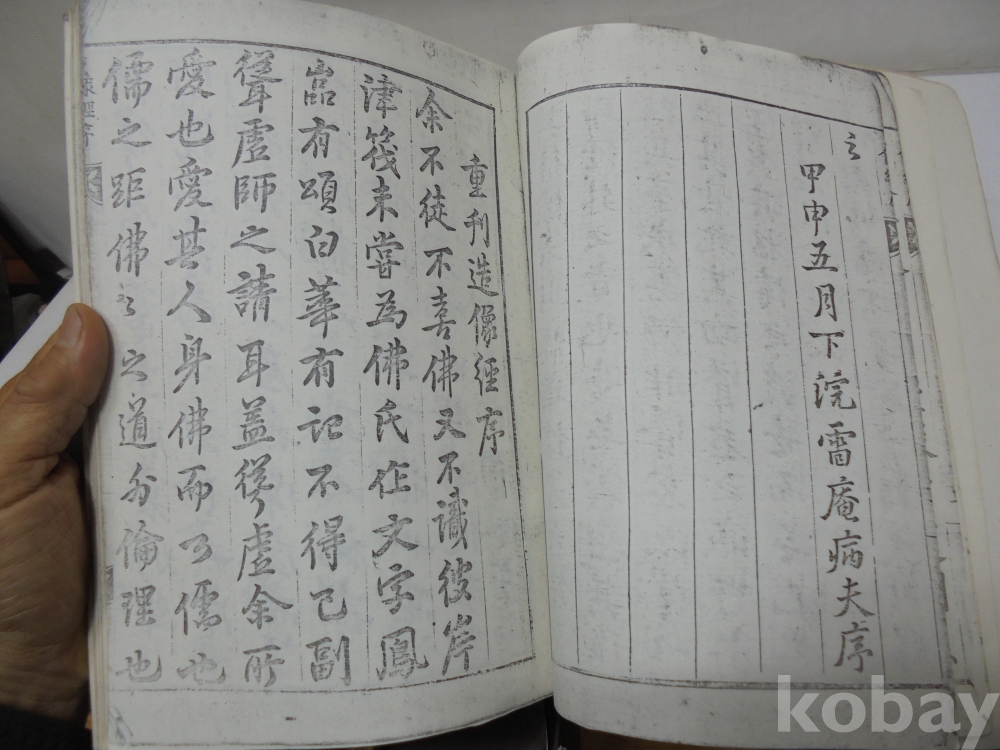 之
甲申五月下浣雷庵病夫序
重刊造像經序
余不徒不喜佛又不識彼岸
津筏未嘗為佛氏作文字鳳
嵒有頌白華有記不得已副
聳虛師之請耳盖聳虛余所
愛也愛其人身佛而心儒也
儒之距佛々之道外倫理也
像經序
kobay